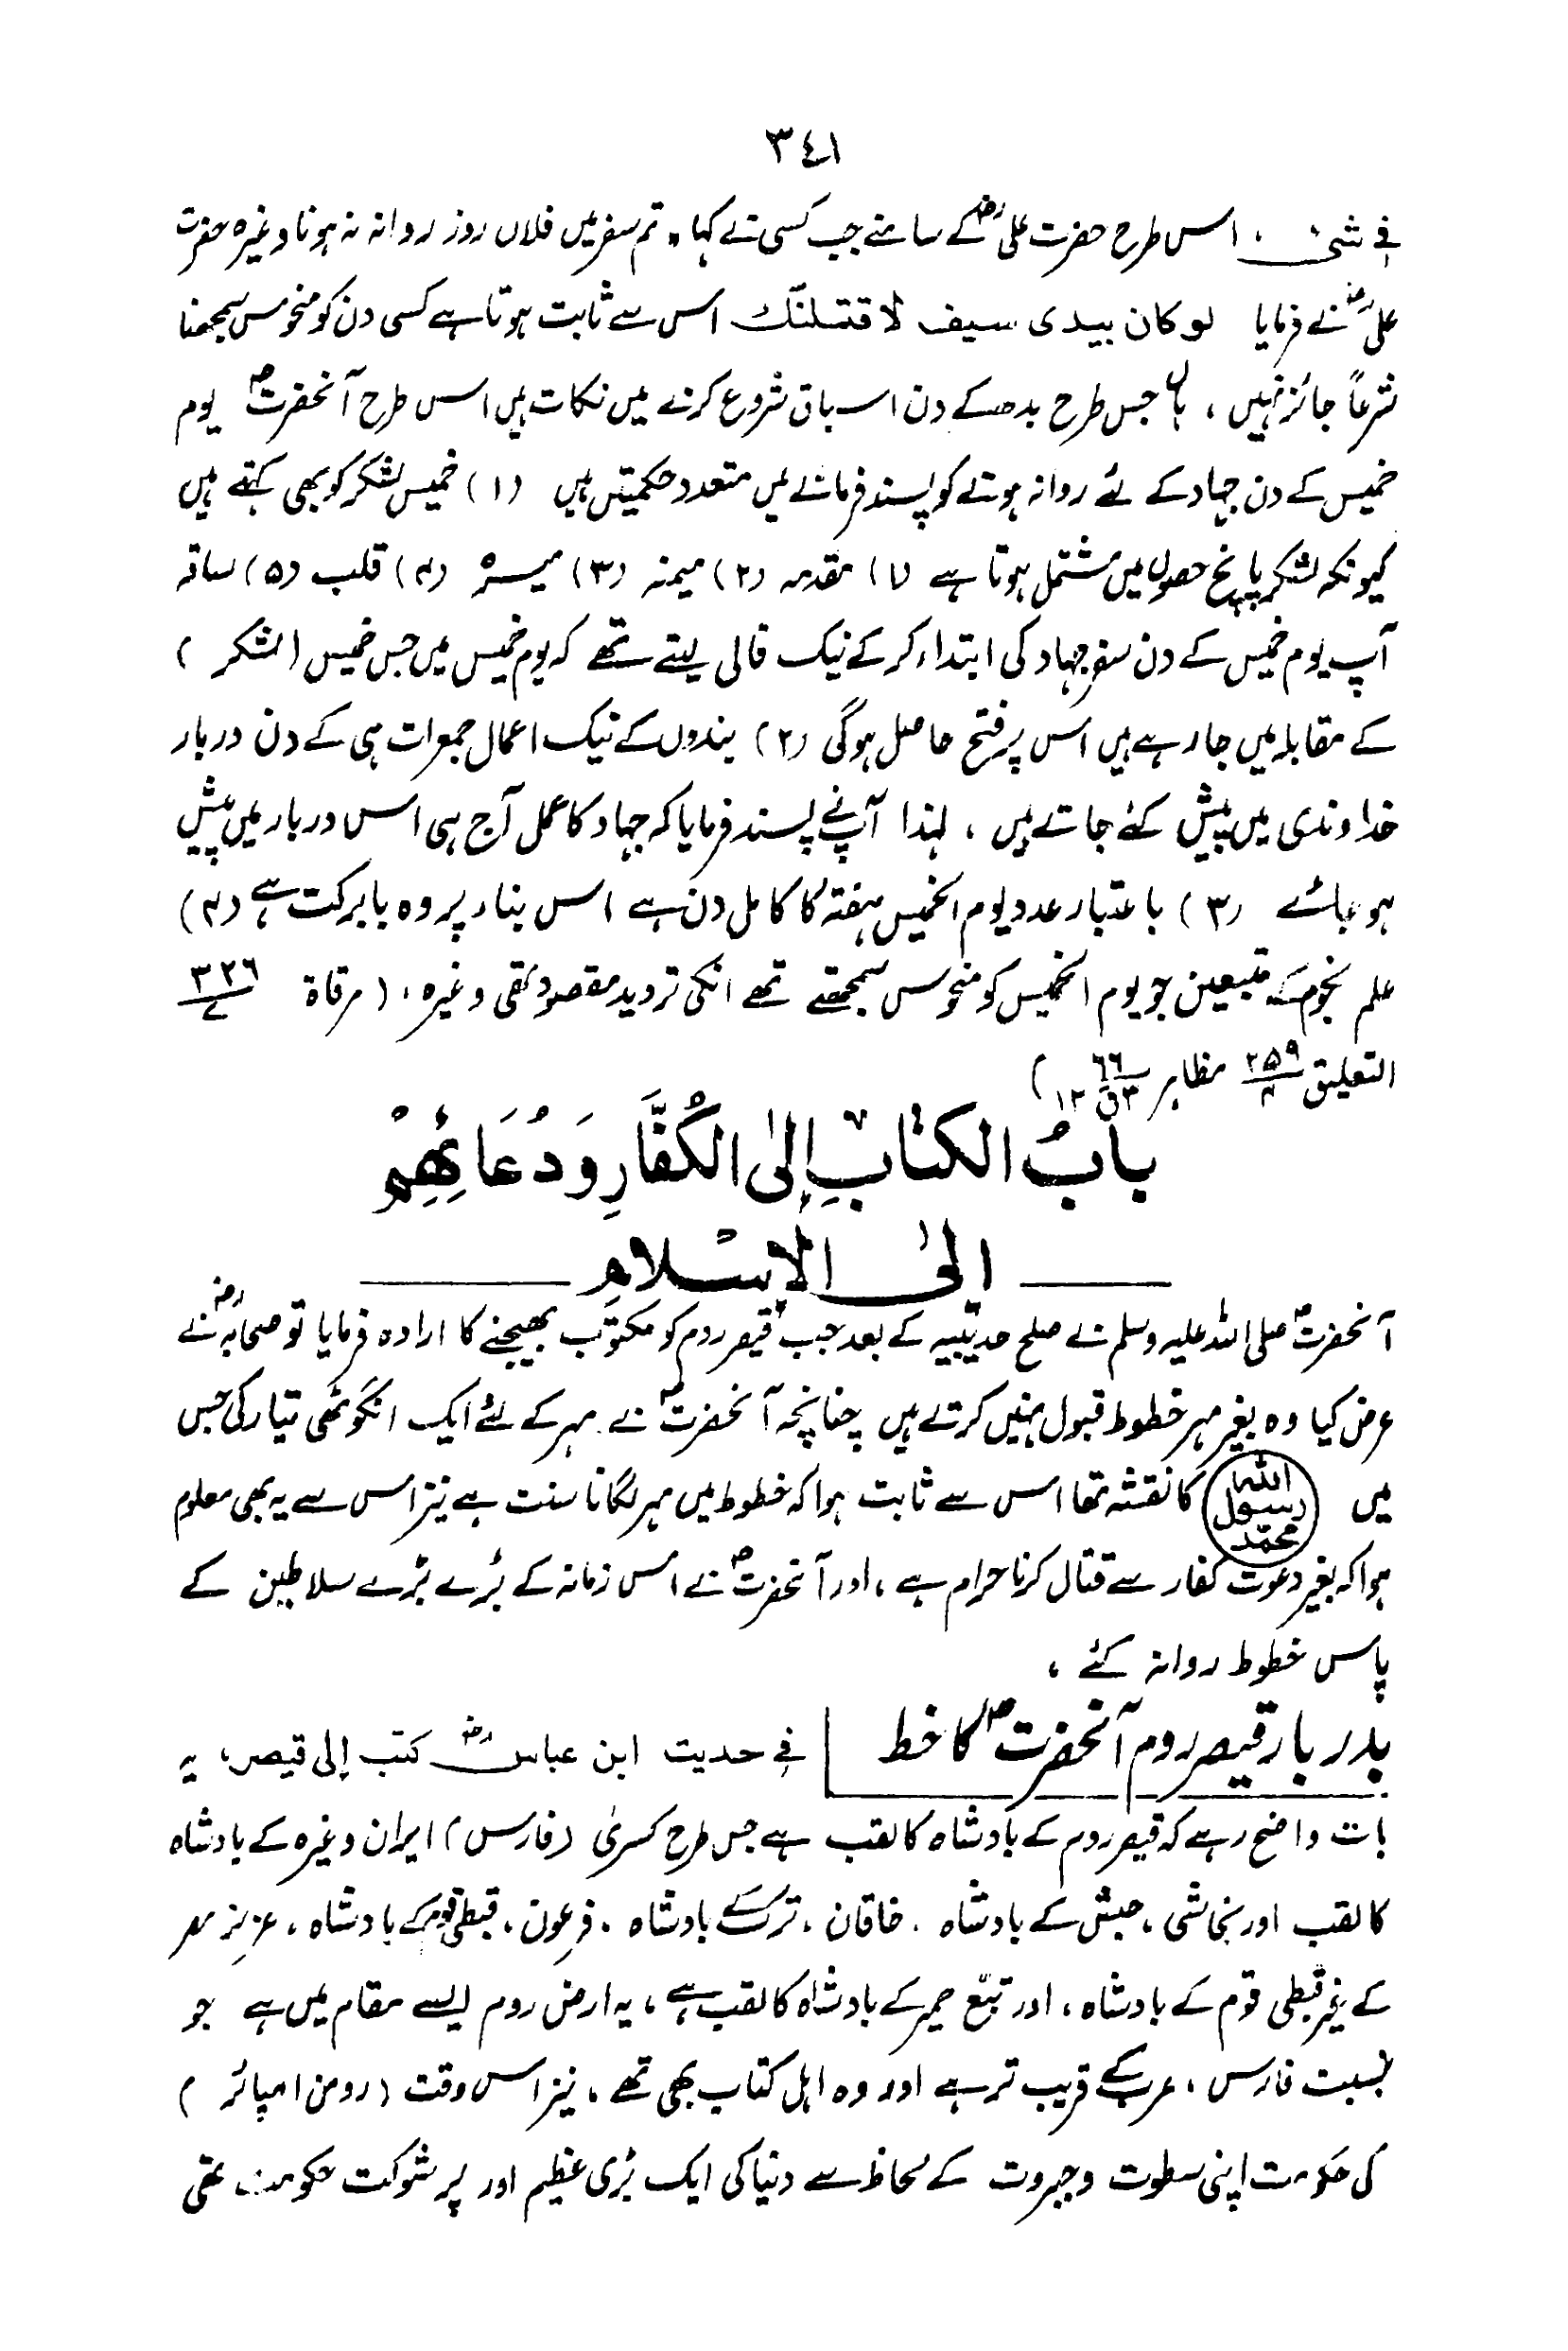 ٣٤١
فی شئ ، اس طرح حضرت علیؓ کے سامنے جب کسی نے کہا، تم سفر میں فلاں روز روانہ نہ ہونا وغیرہ حضرت
علیؓ نے فرمایا لو کان بیدی سیف لاقتلنک اس سے ثابت ہوتا ہے کسی دن کو منحوس سمجھنا
شرعاً جائز نہیں ، ہاں جس طرح بدھ کے دن اسباق شروع کرنے میں نکات ہیں اس طرح آنحضرتؐ یوم
خمیس کے دن جہاد کے لئے روانہ ہونے کو پسند فرمانے میں متعدد حکمیتں ہیں (۱) خمیس لشکر کو بھی کہتے ہیں
کیونکہ لشکر پانچ حصوں میں مشتمل ہوتا ہے (۱) مقدمہ (۲) میمنہ (۳) میسرہ (۴) قلب (۵) ساقہ
آپ یوم خمیس کے دن سفر جہاد کی ابتداء کرکے نیک فالی لیتے تھے کہ یوم خمیس میں جس خمیس (لشکر )
کے مقابلہ میں جارہے ہیں اس پر فتح حاصل ہوگی (۲) بندوں کے نیک اعمال جمعرات ہی کے دن دربار
خداوندی میں پیش کئے جاتے ہیں ، لہٰذا آپؐ نے پسند فرمایا کہ جہاد کا عمل آج ہی اس دربار میں پیش
ہو جائے (۳) باعتبار عدد یوم الخمیس ہفتہ کا کامل دن ہے اس بناء پر وہ بابرکت ہے (۴)
علم نجوم کے متبعین جو یوم الخمیس کو منحوس سمجھتے تھے انکی تردید مقصود تھی وغیرہ ، (مرقاة ٣٢٦/٧
التعلیق ٢٥٩/٤ مظاہر ٦٦/٣ ق ١٢ )
بَابُ الْكِتَابِ إِلَى الْكُفَّارِ وَدُعَائِهِمْ
إِلَى الْإِسْلَامِ
آنحضرتؐ صلی اللہ علیہ وسلم نے صلح حدیبیہ کے بعد جب قیصر روم کو مکتوب بھیجنے کا ارادہ فرمایا تو صحابہؓ نے
عرض کیا وہ بغیر مہر خطوط قبول نہیں کرتے ہیں چنانچہ آنحضرتؐ نے مہر کے لئے ایک انگوٹھی تیار کی جس
میں اللہ رسول محمد کا نقشہ تھا اس سے ثابت ہوا کہ خطوط میں مہر لگانا سنت ہے نیز اس سے یہ بھی معلوم
ہوا کہ بغیر دعوت کفار سے قتال کرنا حرام ہے ، اور آنحضرتؐ نے اس زمانہ کے بڑے بڑے سلاطین کے
پاس خطوط روانہ کئے ،
بدربار قیصر روم آنحضرتؐ کا خط فی حدیث ابن عباسؓ کتب إلی قیصر، یہ
بات واضح رہے کہ قیصر روم کے بادشاہ کا لقب ہے جس طرح کسریٰ (فارس) ایران وغیرہ کے بادشاہ
کا لقب اور نجاشی ، حبش کے بادشاہ ، خاقان ، ترک کے بادشاہ ، فرعون ، قبطی قوم کے بادشاہ ، عزیز مصر
کے غیر قبطی قوم کے بادشاہ ، اور تبّع حمیر کے بادشاہ کا لقب ہے ، یہ ارض روم ایسے مقام میں ہے جو
بنسبت فارس ، عرب کے قریب تر ہے اور وہ اہل کتاب بھی تھے ، نیز اس وقت (رومن امپائر )
کی حکومت اپنی سطوت وجبروت کے لحاظ سے دنیا کی ایک بڑی عظیم اور پر شوکت حکومت تھی